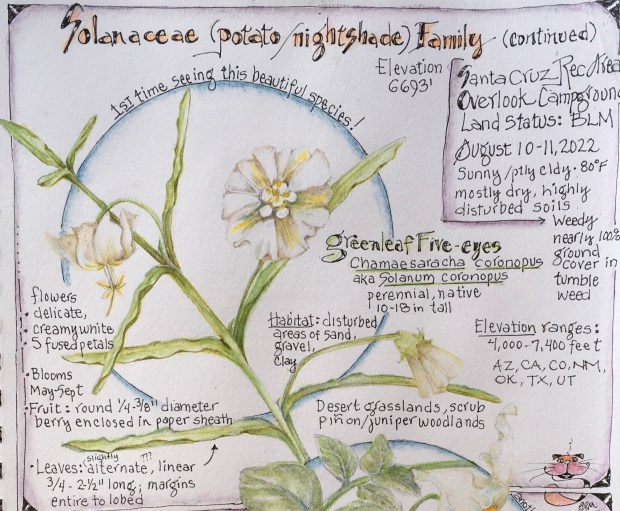 Solanaceae (potato/nightshade) Family (continued)
1st time seeing this beautiful species!
Elevation
6693'
Santa Cruz Rec Area
Overlook Campground
Land Status: BLM
August 10-11, 2022
Sunny/ptly cldy. 80°F
mostly dry, highly
disturbed soils
Weedy
nearly 100%
ground
cover in
tumble
weed
greenleaf Five-eyes
Chamaesaracha coronopus
aka Solanum coronopus
perennial, native
10-18 in tall
flowers
delicate,
creamy white
5 fused petals
• Blooms
May-Sept
• Fruit: round 1/4-3/8" diameter
berry enclosed in paper sheath
• Leaves: slightly alternate, ??? linear
3/4 - 2-1/2" long; margins
entire to lobed
Habitat: disturbed
areas of sand,
gravel,
clay
Desert grasslands, scrub
piñon/juniper woodlands
Elevation ranges:
4,000-7,400 feet
AZ, CA, CO, NM,
OK, TX, UT